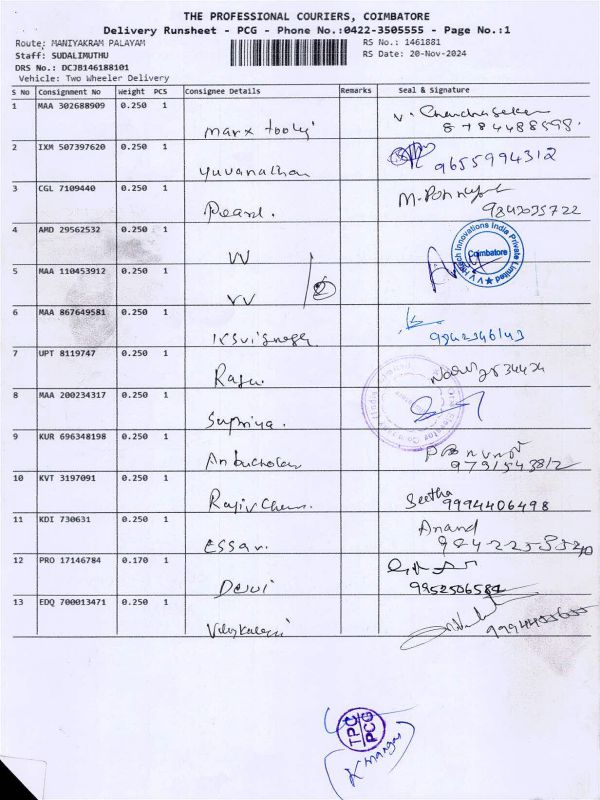 THE PROFESSIONAL COURIERS, COIMBATORE
Delivery Runsheet - PCG - Phone No.:0422-3505555 - Page No.:1
Route: MANIYAKRAM PALAYAM RS No.: 1461881
Staff: SUDALIMUTHU RS Date: 20-Nov-2024
DRS No.: DCJB146188101
Vehicle: Two Wheeler Delivery
S No Consignment No Weight PCS Consignee Details Remarks Seal & Signature
1 MAA 302688909 0.250 1 V. Chandrasekar
Marx
2 IXM 507397620 0.250 1 9655994312
Yuvanathan
3 CGL 7109440 0.250 1
Pearl.
4 AMD 29562532 0.250 1 Innovations India Private Limited
VV Coimbatore
5 MAA 110453912 0.250 1
VV
6 MAA 867649581 0.250 1
7 UPT 8119747 0.250 1
Raju.
8 MAA 200234317 0.250 1
Supriya.
9 KUR 696348198 0.250 1
10 KVT 3197091 0.250 1 Seetha
9994406498
11 KDI 730631 0.250 1 Anand
Essar.
12 PRO 17146784 0.170 1
Devi 9952506584
13 EDQ 700013471 0.250 1
TPC
PCG